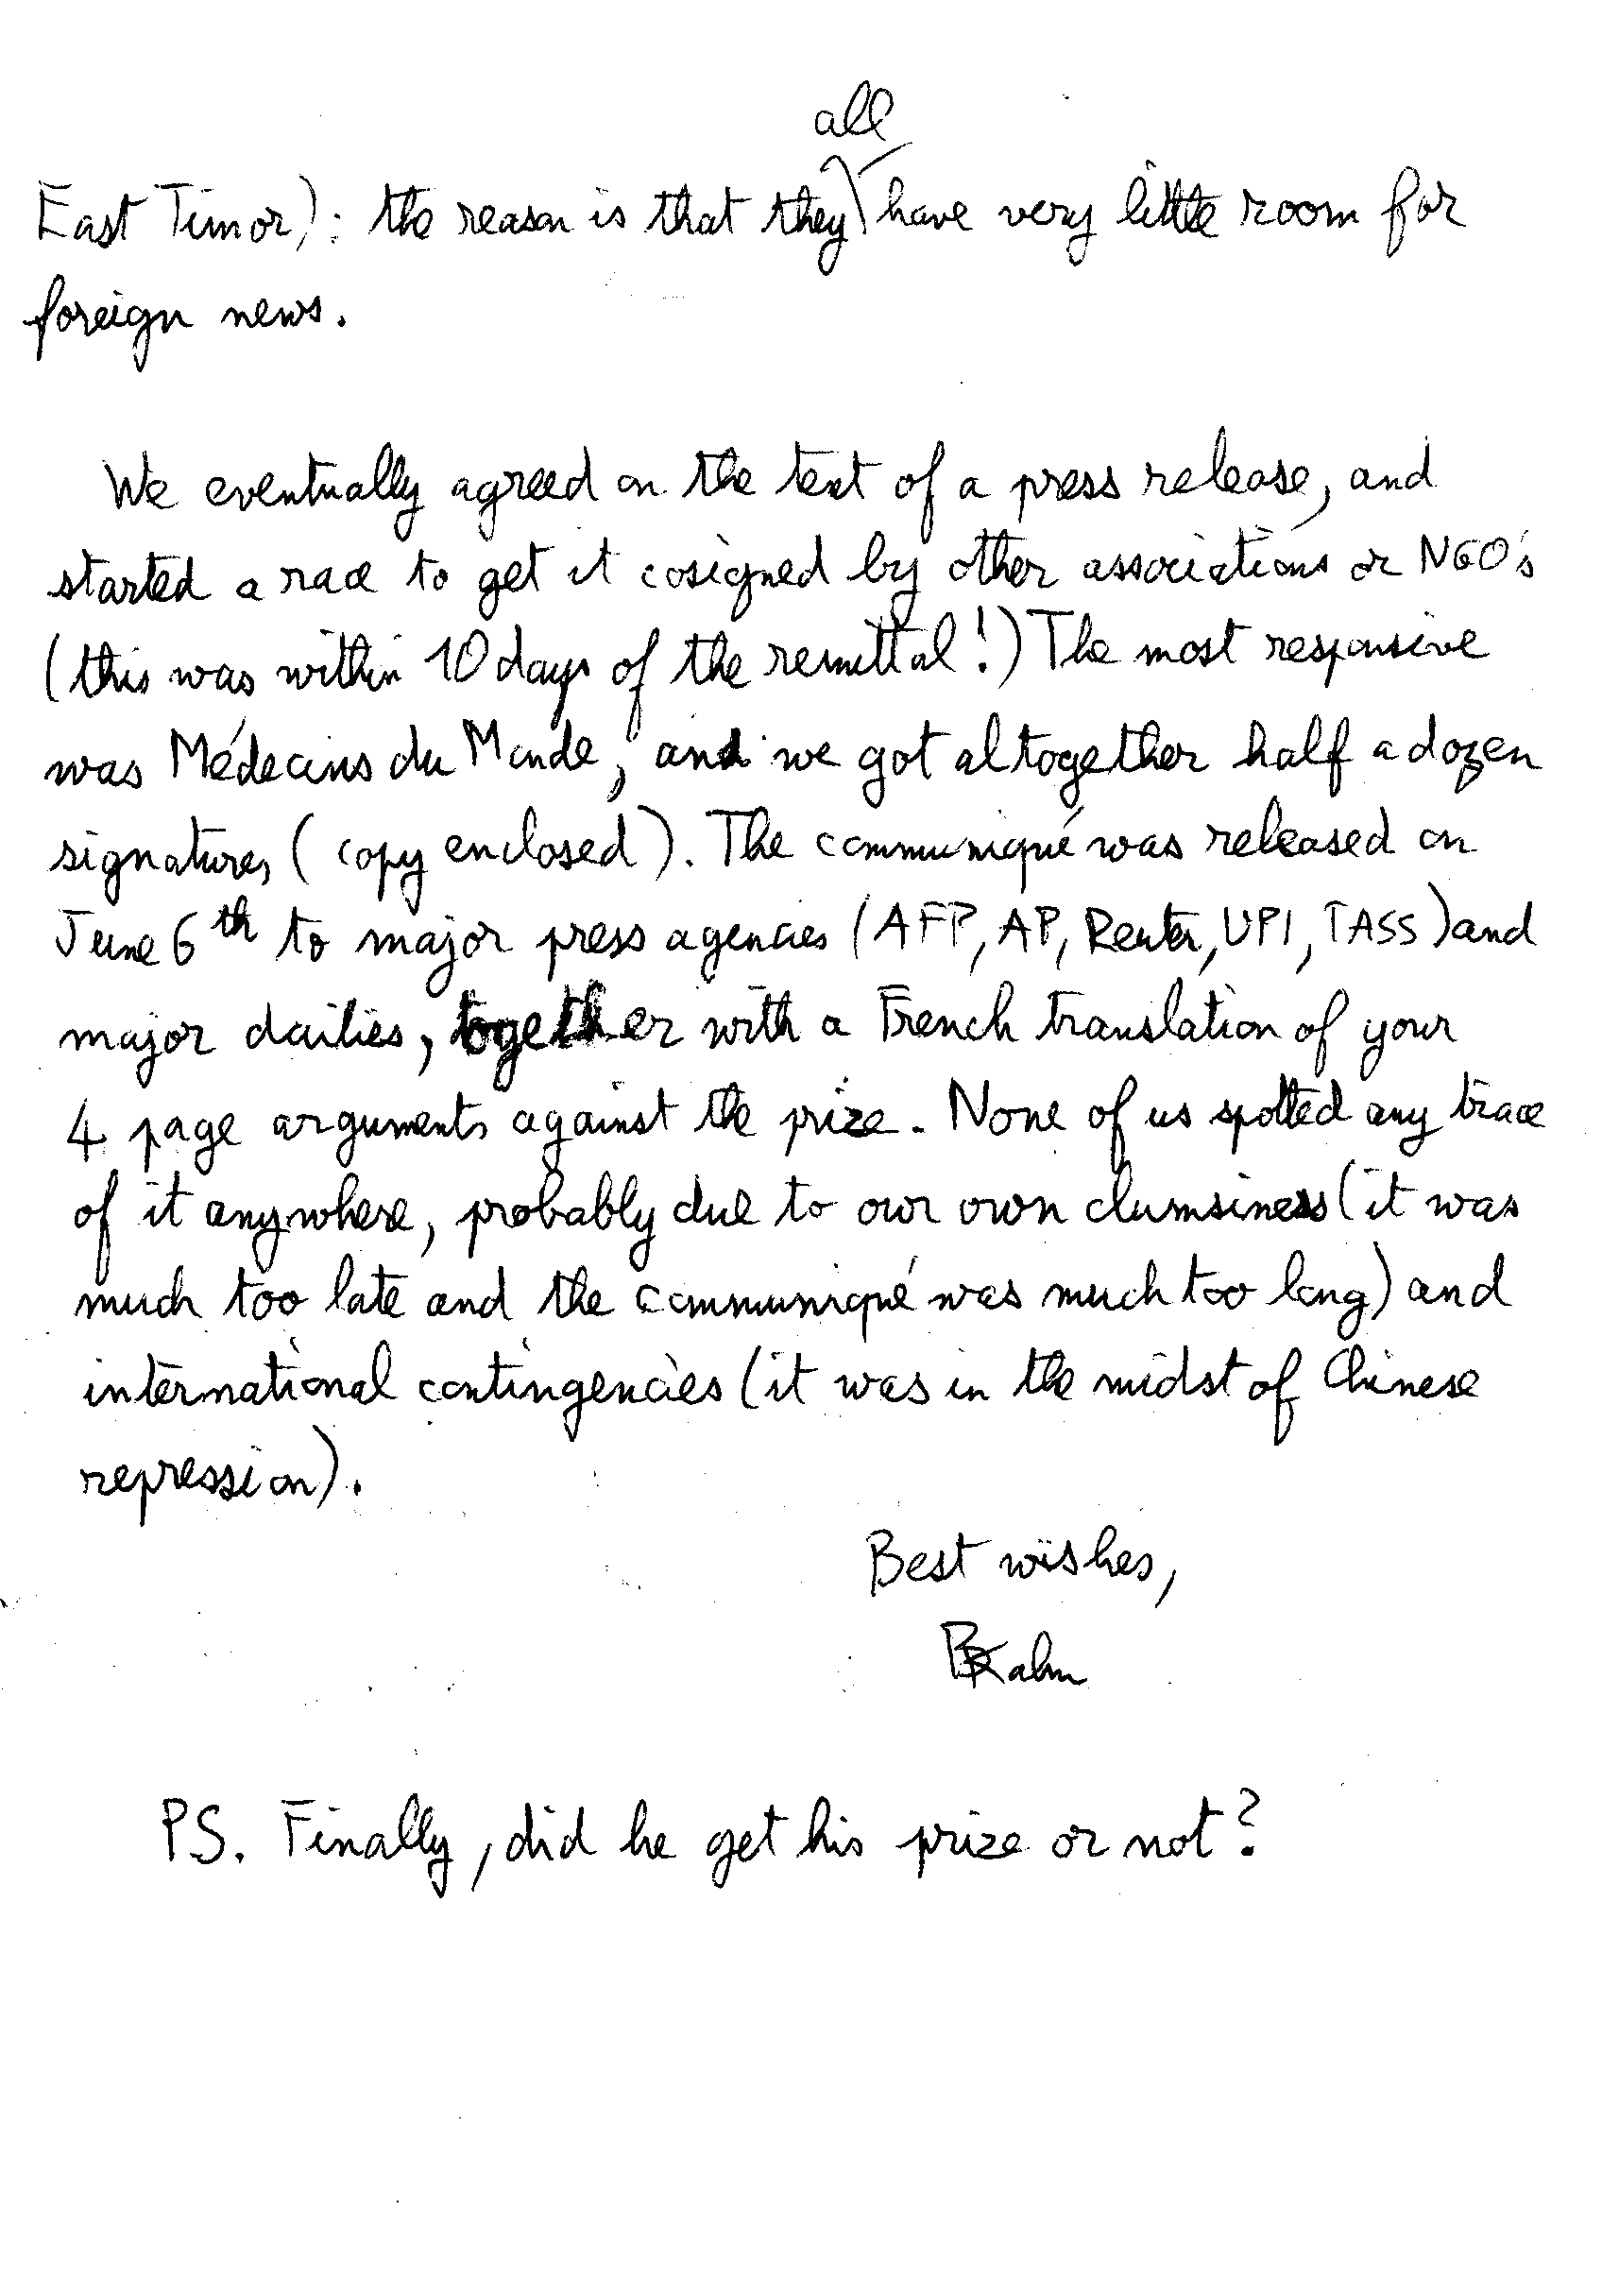 all
East Timor): the reason is that they have very little room for
foreign news.
We eventually agreed on the text of a press release, and
started a race to get it cosigned by other associations or NGO's
(this was within 10 days of the remittal!) The most responsive
was Médecins du Monde, and we got altogether half a dozen
signatures (copy enclosed). The communiqué was released on
June 6th to major press agencies (AFP, AP, Reuter, UPI, TASS) and
major dailies, together with a French translation of your
4 page arguments against the prize. None of us spotted any trace
of it anywhere, probably due to our own clumsiness (it was
much too late and the communiqué was much too long) and
international contingencies (it was in the midst of Chinese
repression).
Best wishes,
BKahn
PS. Finally, did he get his prize or not?